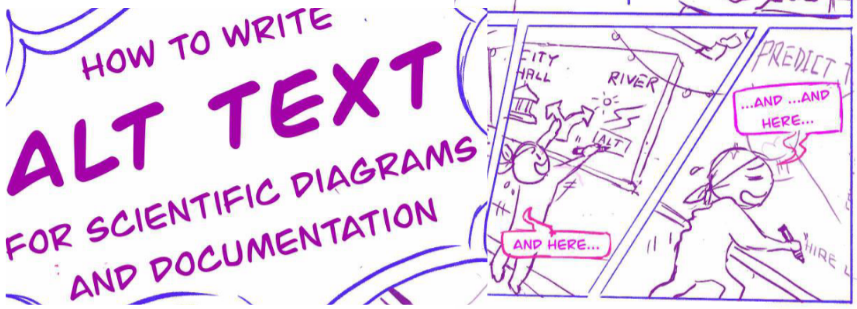 HOW TO WRITE
ALT TEXT
FOR SCIENTIFIC DIAGRAMS
AND DOCUMENTATION
CITY
HALL
RIVER
ALT
AND HERE...
PREDICT
...AND ...AND
HERE...
HIRE